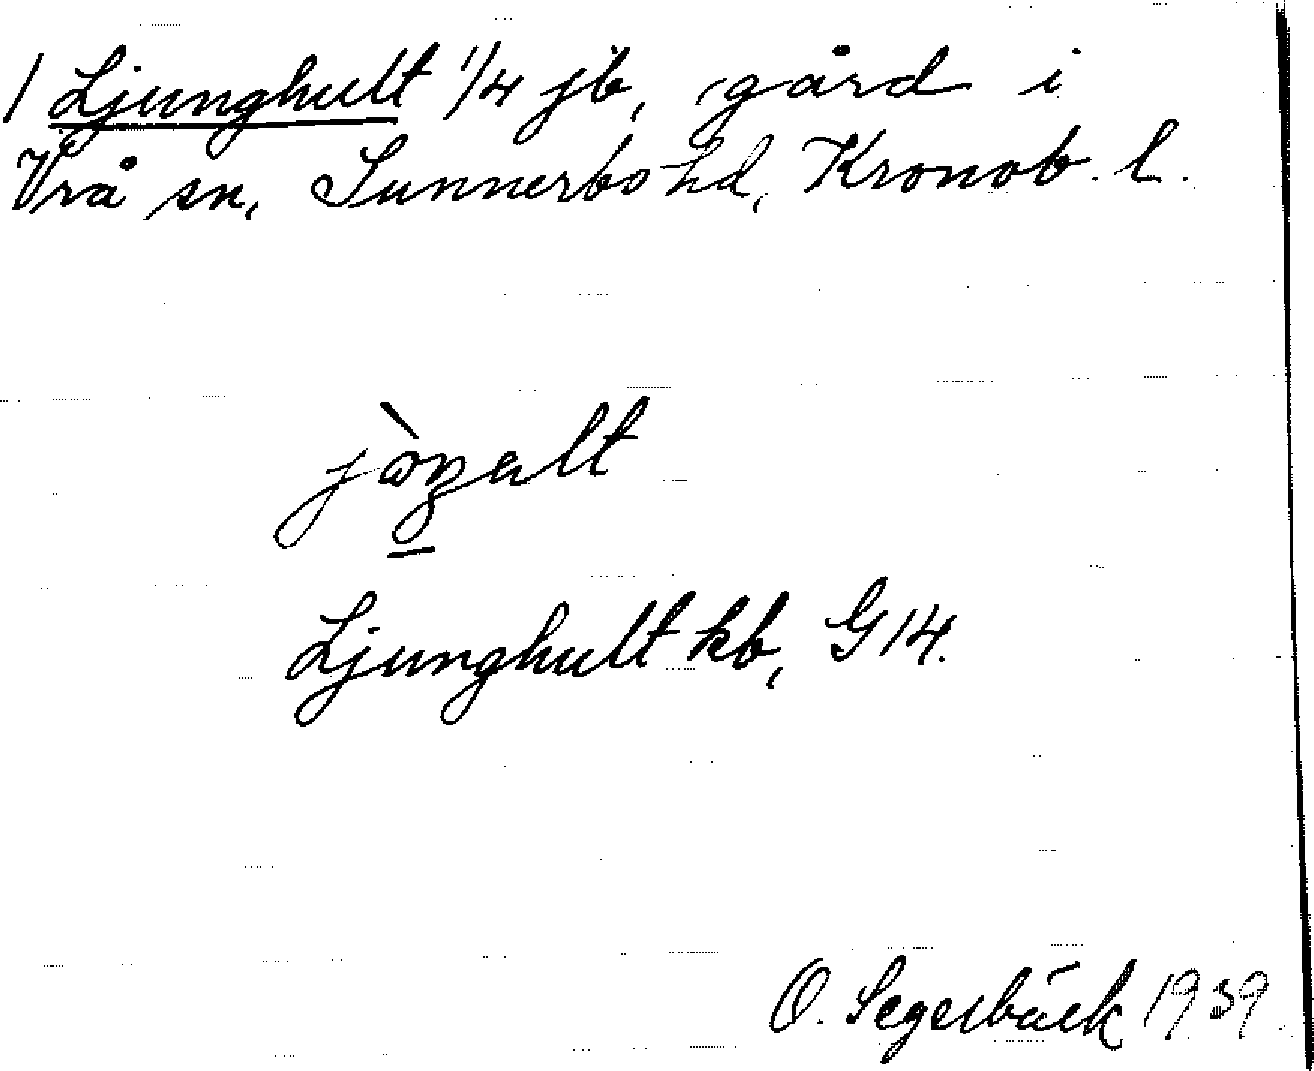 1 Ljunghult 1/4 jb, gård i
Vrå sn, Sunnerbo hd, Kronob. l.
Ljunghult kb, G14.
O. Segerbäck 1939